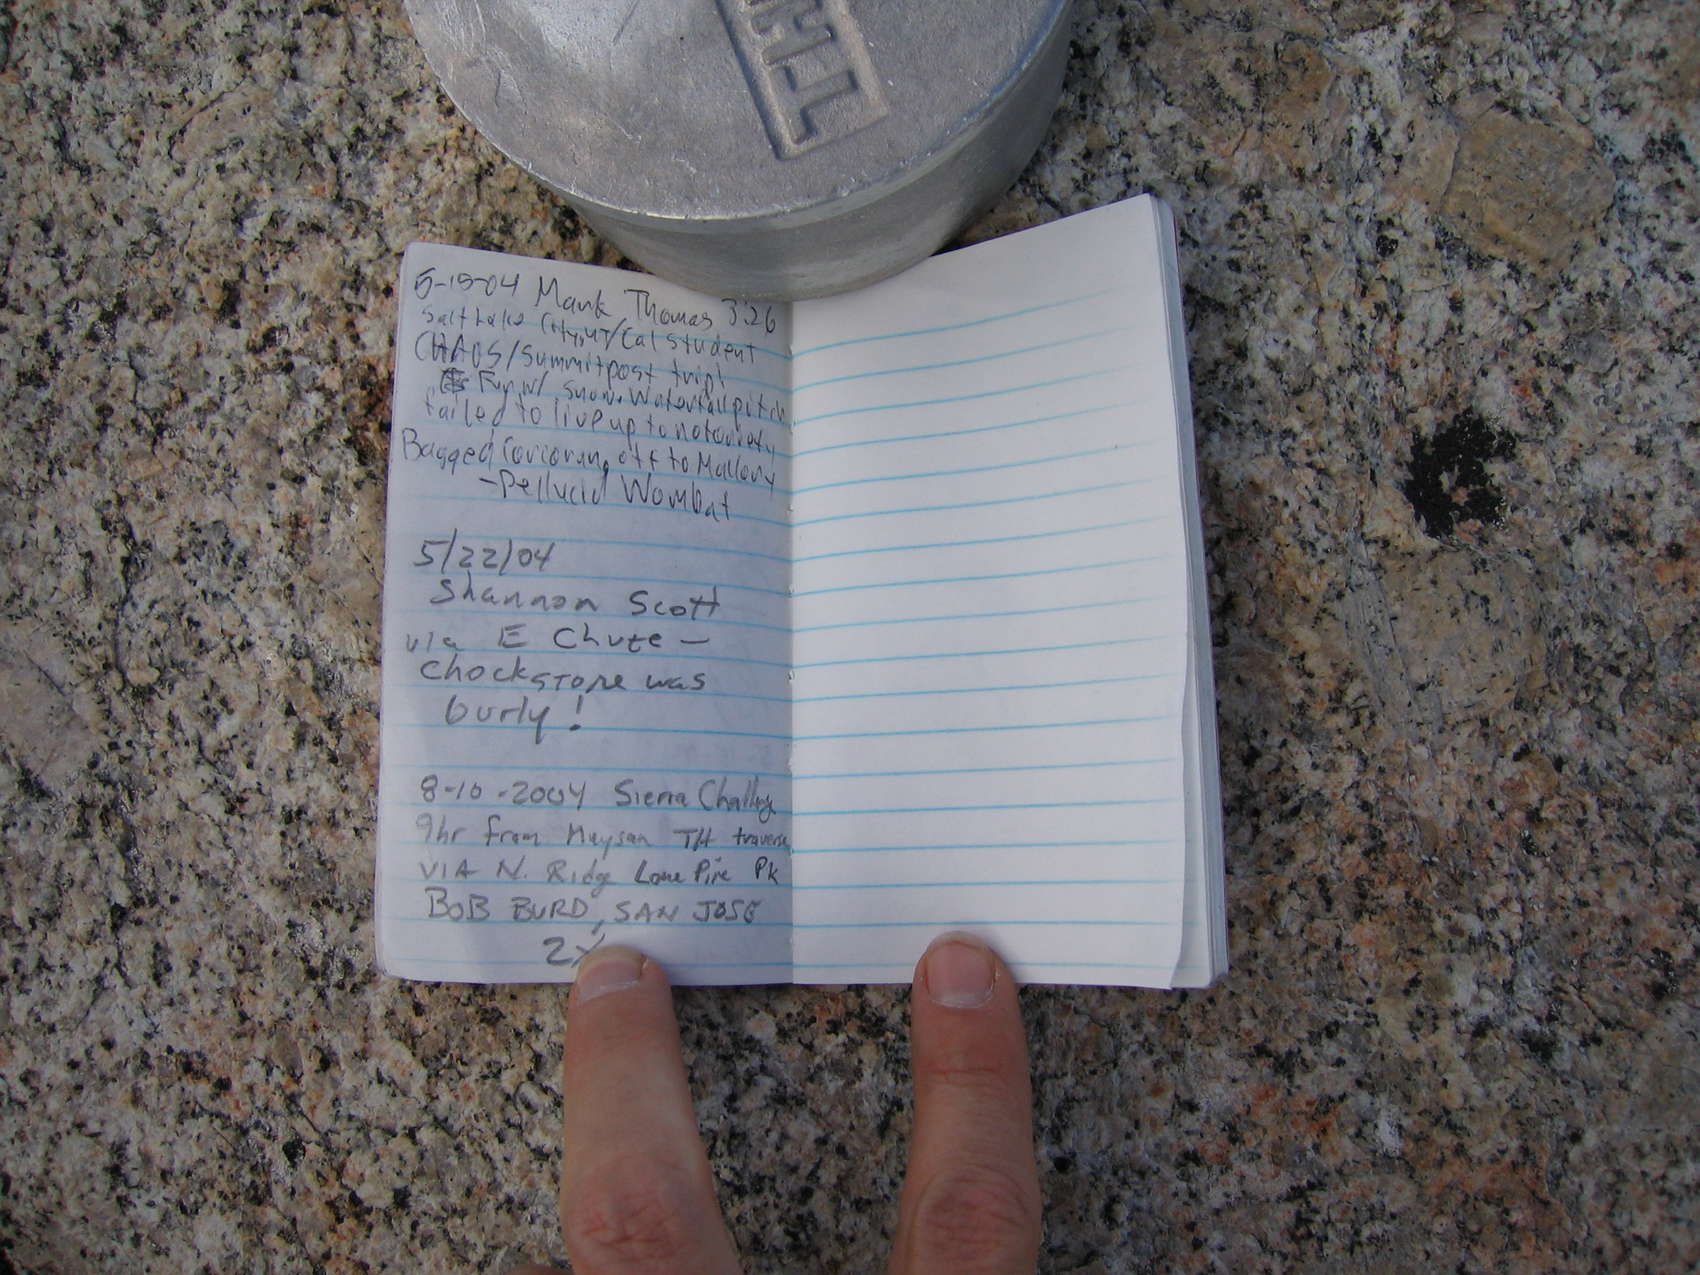 THI
5-15-04 Mark Thomas 3:26
Salt Lake City, UT/Cal student
CHAOS/Summitpost trip!
Fun w/ snow. Waterfall pitch
failed to live up to notoriety
Bagged Corcoran, off to Mallory
-Pellucid Wombat
5/22/04
Shannon Scott
via E Chute -
Chockstone was
burly!
8-10-2004 Sierra Challenge
9hr from Meysan TH traverse
VIA N. Ridge Lone Pine Pk
BOB BURD, SAN JOSE
2x